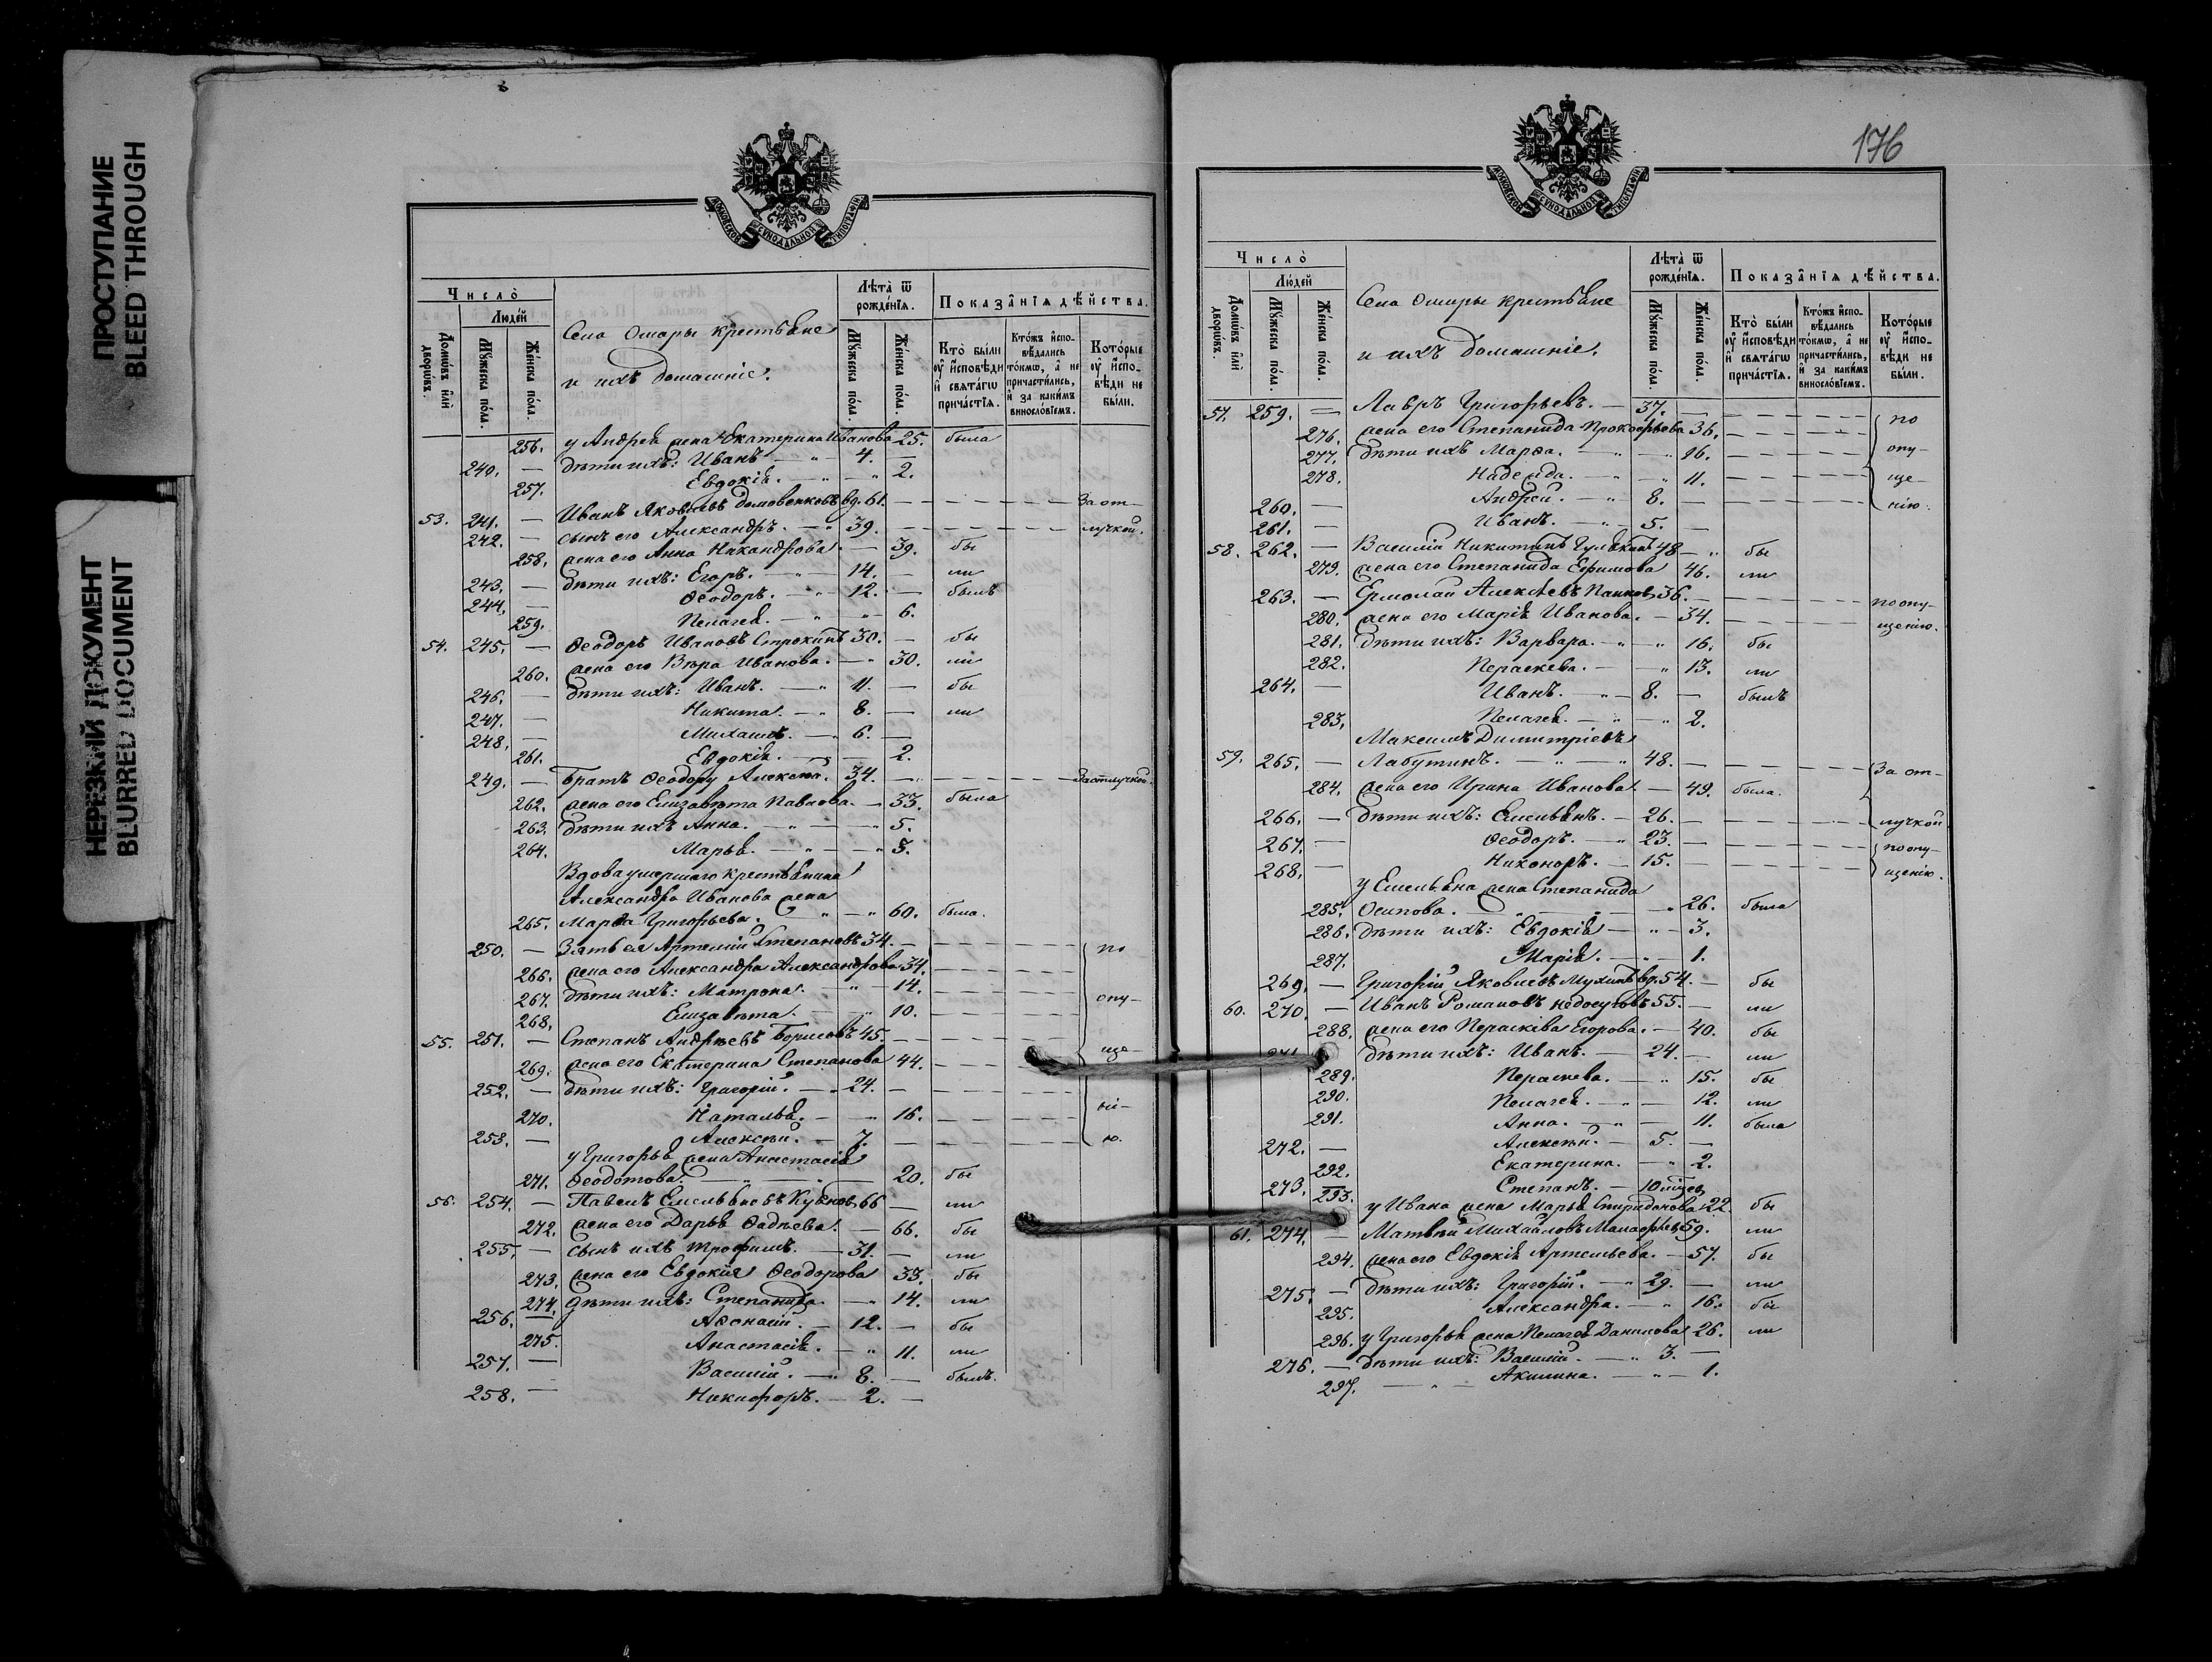 ПРОСТУПАНИЕ
BLEED THROUGH
НЕРЕЗКИЙ ДОКУМЕНТ
BLURRED DOCUMENT
МОСКОВСКОЙ СѴНОДАЛЬНОЙ ТИПОГРАФІИ
Число̀
Людéй
Домѡ́въ и҆лѝ дворѡ́въ.
Мꙋ́жеска по́ла.
Же́нска по́ла.
Села Омары крестьяне
и ихъ домашніе.
Лѣта̀ ѿ рожде́нїѧ.
Мꙋ́жеска по́ла.
Же́нска по́ла.
Показа̑нїѧ дѣ́йства.
Кто̀ бы́ли ᲂу҆ и҆сповѣди и҆ свѧта́гѡ прича́стїѧ.
Кто́жъ и҆спо- вѣдались то́кмѡ, а҆ не причасти́лись, и҆ за каки́мъ винослóвїемъ.
Кото́рые ᲂу҆ и҆спо- вѣди не бы́ли.
256. у Андрея жена Екатерина Иванова 25. была
240. — дѣти ихъ: Иванъ — 4. —
257. Евдокія. — 2.
53. 241. — Иванъ Яковлевъ Домовенковъ вд. 61. — За от-
242. — сынъ его Александръ. — 39. — лучкой.
258. жена его Анна Никандрова — 39. бы
243. — дѣти ихъ: Егоръ. — 14. — ли
244. — Ѳеодоръ. — 12. — былъ
259. Пелагея. — 6.
54. 245. — Ѳеодоръ Ивановъ Строкинъ 30. — бы
260. жена его Вѣра Иванова. — 30. ли
246. — дѣти ихъ: Иванъ. — 11. — бы
247. — Никита. — 8. — ли
248. — Михаилъ. — 6. —
261. Евдокія. — 2.
249. — Братъ Ѳеодору Алексѣй. 34. — За отлучкой.
262. жена его Елизавѣта Павлова. — 33. была
263. дѣти ихъ Анна. — 5.
264. Марья. — 3.
Вдова умершаго крестьянина
Александра Иванова жена
265. Марѳа Григорьева. — 60. была.
250. — Зять ея Артемій Степановъ 34. — по
266. жена его Александра Александрова 34.
267. дѣти ихъ: Матрона. — 14. опу-
268. Елизавѣта. — 10.
55. 251. — Степанъ Андреевъ Борисовъ 45. —
269. жена его Екатерина Степанова 44. ще-
252. — дѣти ихъ: Григорій. — 24. —
270. Наталья. — 16. ні-
253. — Алексѣй. — 7. — ю.
у Григорья жена Анастасія
271. Ѳеодотова. — 20. бы
56. 254. — Павелъ Емельяновъ 66 — ли
272. жена его Дарья Фадѣева. — 66. бы
255. — сынъ ихъ Трофимъ. — 31. — ли
273. жена его Евдокія Ѳеодорова 33. бы
274. дѣти ихъ: Степанида. — 14. ли
256. — Аѳонасій. — 12. — бы
275. Анастасія. — 11. ли
257. — Василій. — 8. — былъ.
258. — Никифоръ. — 2. —
176
МОСКОВСКОЙ СѴНОДАЛЬНОЙ ТИПОГРАФІИ
Число̀
Людéй
Домѡ́въ и҆лѝ дворѡ́въ.
Мꙋ́жеска по́ла.
Же́нска по́ла.
Села Омары крестьяне
и ихъ домашніе.
Лѣта̀ ѿ рожде́нїѧ.
Мꙋ́жеска по́ла.
Же́нска по́ла.
Показа̑нїѧ дѣ́йства.
Кто̀ бы́ли ᲂу҆ и҆сповѣди и҆ свѧта́гѡ прича́стїѧ.
Кто́жъ и҆спо- вѣдались то́кмѡ, а҆ не причасти́лись, и҆ за каки́мъ винослóвїемъ.
Кото́рые ᲂу҆ и҆спо- вѣди не бы́ли.
57. 259. — Лавръ Григорьевъ. — 37. — по
276. жена его Степанида Прокофьева 36.
277. дѣти ихъ Марѳа. — 16. опу-
278. Надежда. — 11. ще-
260. — Андрей. — 8. нію.
261. — Иванъ. — 5. —
58. 262. — Василій Никитинъ 48 — бы
279. жена его Степанида Ефимова 46. ли
263. — Ермолай Алексѣевъ Панковъ 36. — по опу-
280. жена его Марія Иванова. — 34. щенію.
281. дѣти ихъ: Варвара. — 16. бы
282. Параскева. — 13. ли
264. — Иванъ. — 8. — былъ
283. Пелагея. — 2.
Максимъ Димитріевъ
59. 265. — Лабутинъ. — 48. — За от-
284. жена его Ирина Иванова. — 49. была.
266. — дѣти ихъ: Емельянъ. — 26. — лучкой
267. — Ѳеодоръ. — 23. — по опу-
268. — Никоноръ. — 15. — щенію.
у Емельяна жена Степанида
285. Осипова. — 26. была
286. дѣти ихъ: Евдокія — 3.
287. Марія. — 1.
269. — Григорій Яковлевъ Мухинъ вд. 54. — бы
60. 270. — Иванъ Романовъ Недосуговъ 55. — ли
288. жена его Параскева Егорова. — 40. бы
271. дѣти ихъ: Иванъ. — 24. — ли
289. Параскева. — 15. бы
290. Пелагея. — 12. ли
291. Анна. — 11. была
272. — Алексѣй. — 5. —
292. Екатерина. — 2.
273. — Степанъ. — 10 мѣсяц.
293. у Ивана жена Марья Спиридонова 22 бы
61. 274. — Матвѣй Михайловъ 59. ли
294. жена его Евдокія Артемьева. — 57. бы
275. — дѣти ихъ: Григорій. — 29. — ли
295. Александра. — 16. бы
296. у Григорья жена Пелагея Данилова 26. ли
276. — дѣти ихъ: Василій. — 3. —
297. — Акилина. — 1.